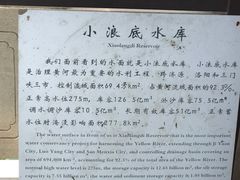 小浪底水库
Xiaolangdi Reservoir
我们面前看到的水面就是小浪底水库。小浪底水库
是治理黄河最为重要的水利工程，跨济源、洛阳和三门
峡三市。控制流域面积69.4万km²，占黄河流域面积的92.3%。
正常高水位275m，库容126.5亿m³，淤沙库容75.5亿m³，
调水调沙库容10.5亿m³，长期有效库容51亿m³，正常蓄
水位时淹没影响面积277.8km²。
The water surface in front of us is Xiaolangdi Reservoir that is the most important
water conservancy project for harnessing the Yellow River, extending through
City, Luo Yang City and San Menxia City, and controlling drainage basin covering
an area of 694,000 km², accounting for 92.3% of the total area of the Yellow River. The
normal high water level is 275m, the storage capacity is 12.65 billion m³, the silt storage
capacity is 7.55 billion m³, the water and sediment storage capacity is 1.05 billion m³,